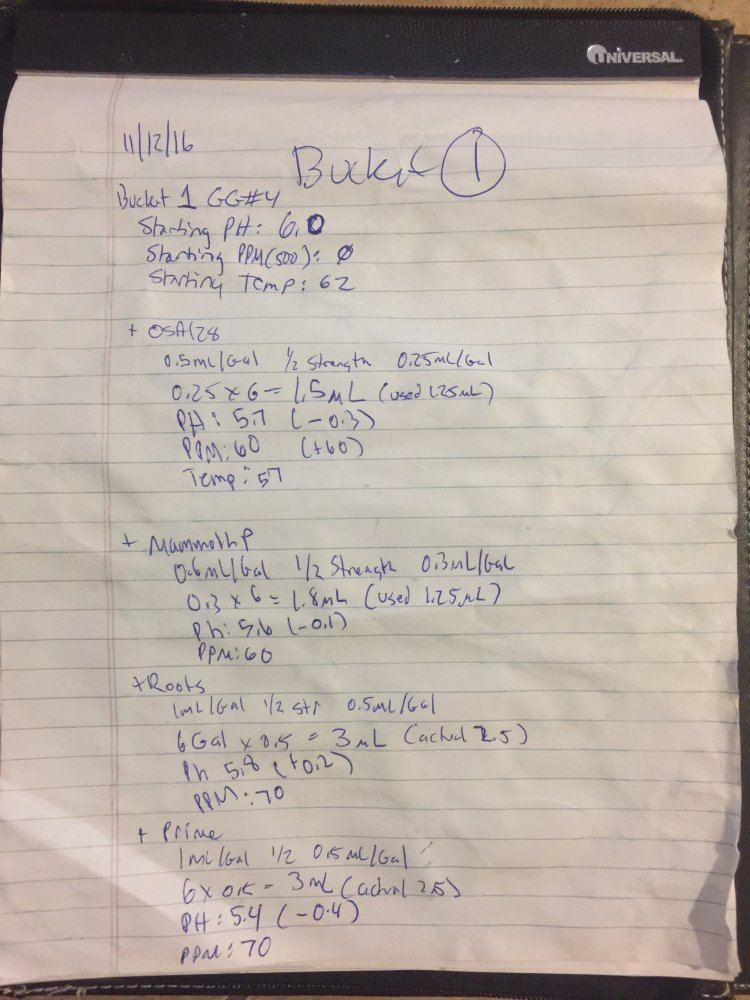 UNIVERSAL
11/12/16
Bucket 1
Bucket 1 GG#4
Starting PH: 6.0
Starting PPM(500): 0
Starting Temp: 62
+ OSA128
0.5mL/Gal 1/2 Strength 0.25mL/Gal
0.25 x 6 = 1.5mL (used 1.25mL)
PH: 5.7 (-0.3)
PPM: 60 (+60)
Temp: 57
+ Mammoth P
0.6mL/Gal 1/2 Strength 0.3mL/Gal
0.3 x 6 = 1.8mL (used 1.25mL)
Ph: 5.6 (-0.1)
PPM: 60
+Roots
1mL/Gal 1/2 str 0.5mL/Gal
6 Gal x 0.5 = 3mL (actual 2.5)
Ph 5.8 (+0.2)
PPM: 70
+ Prime
1mL/Gal 1/2 0.5mL/Gal
6 x 0.5 = 3mL (actual 2.5)
PH: 5.4 (-0.4)
PPM: 70